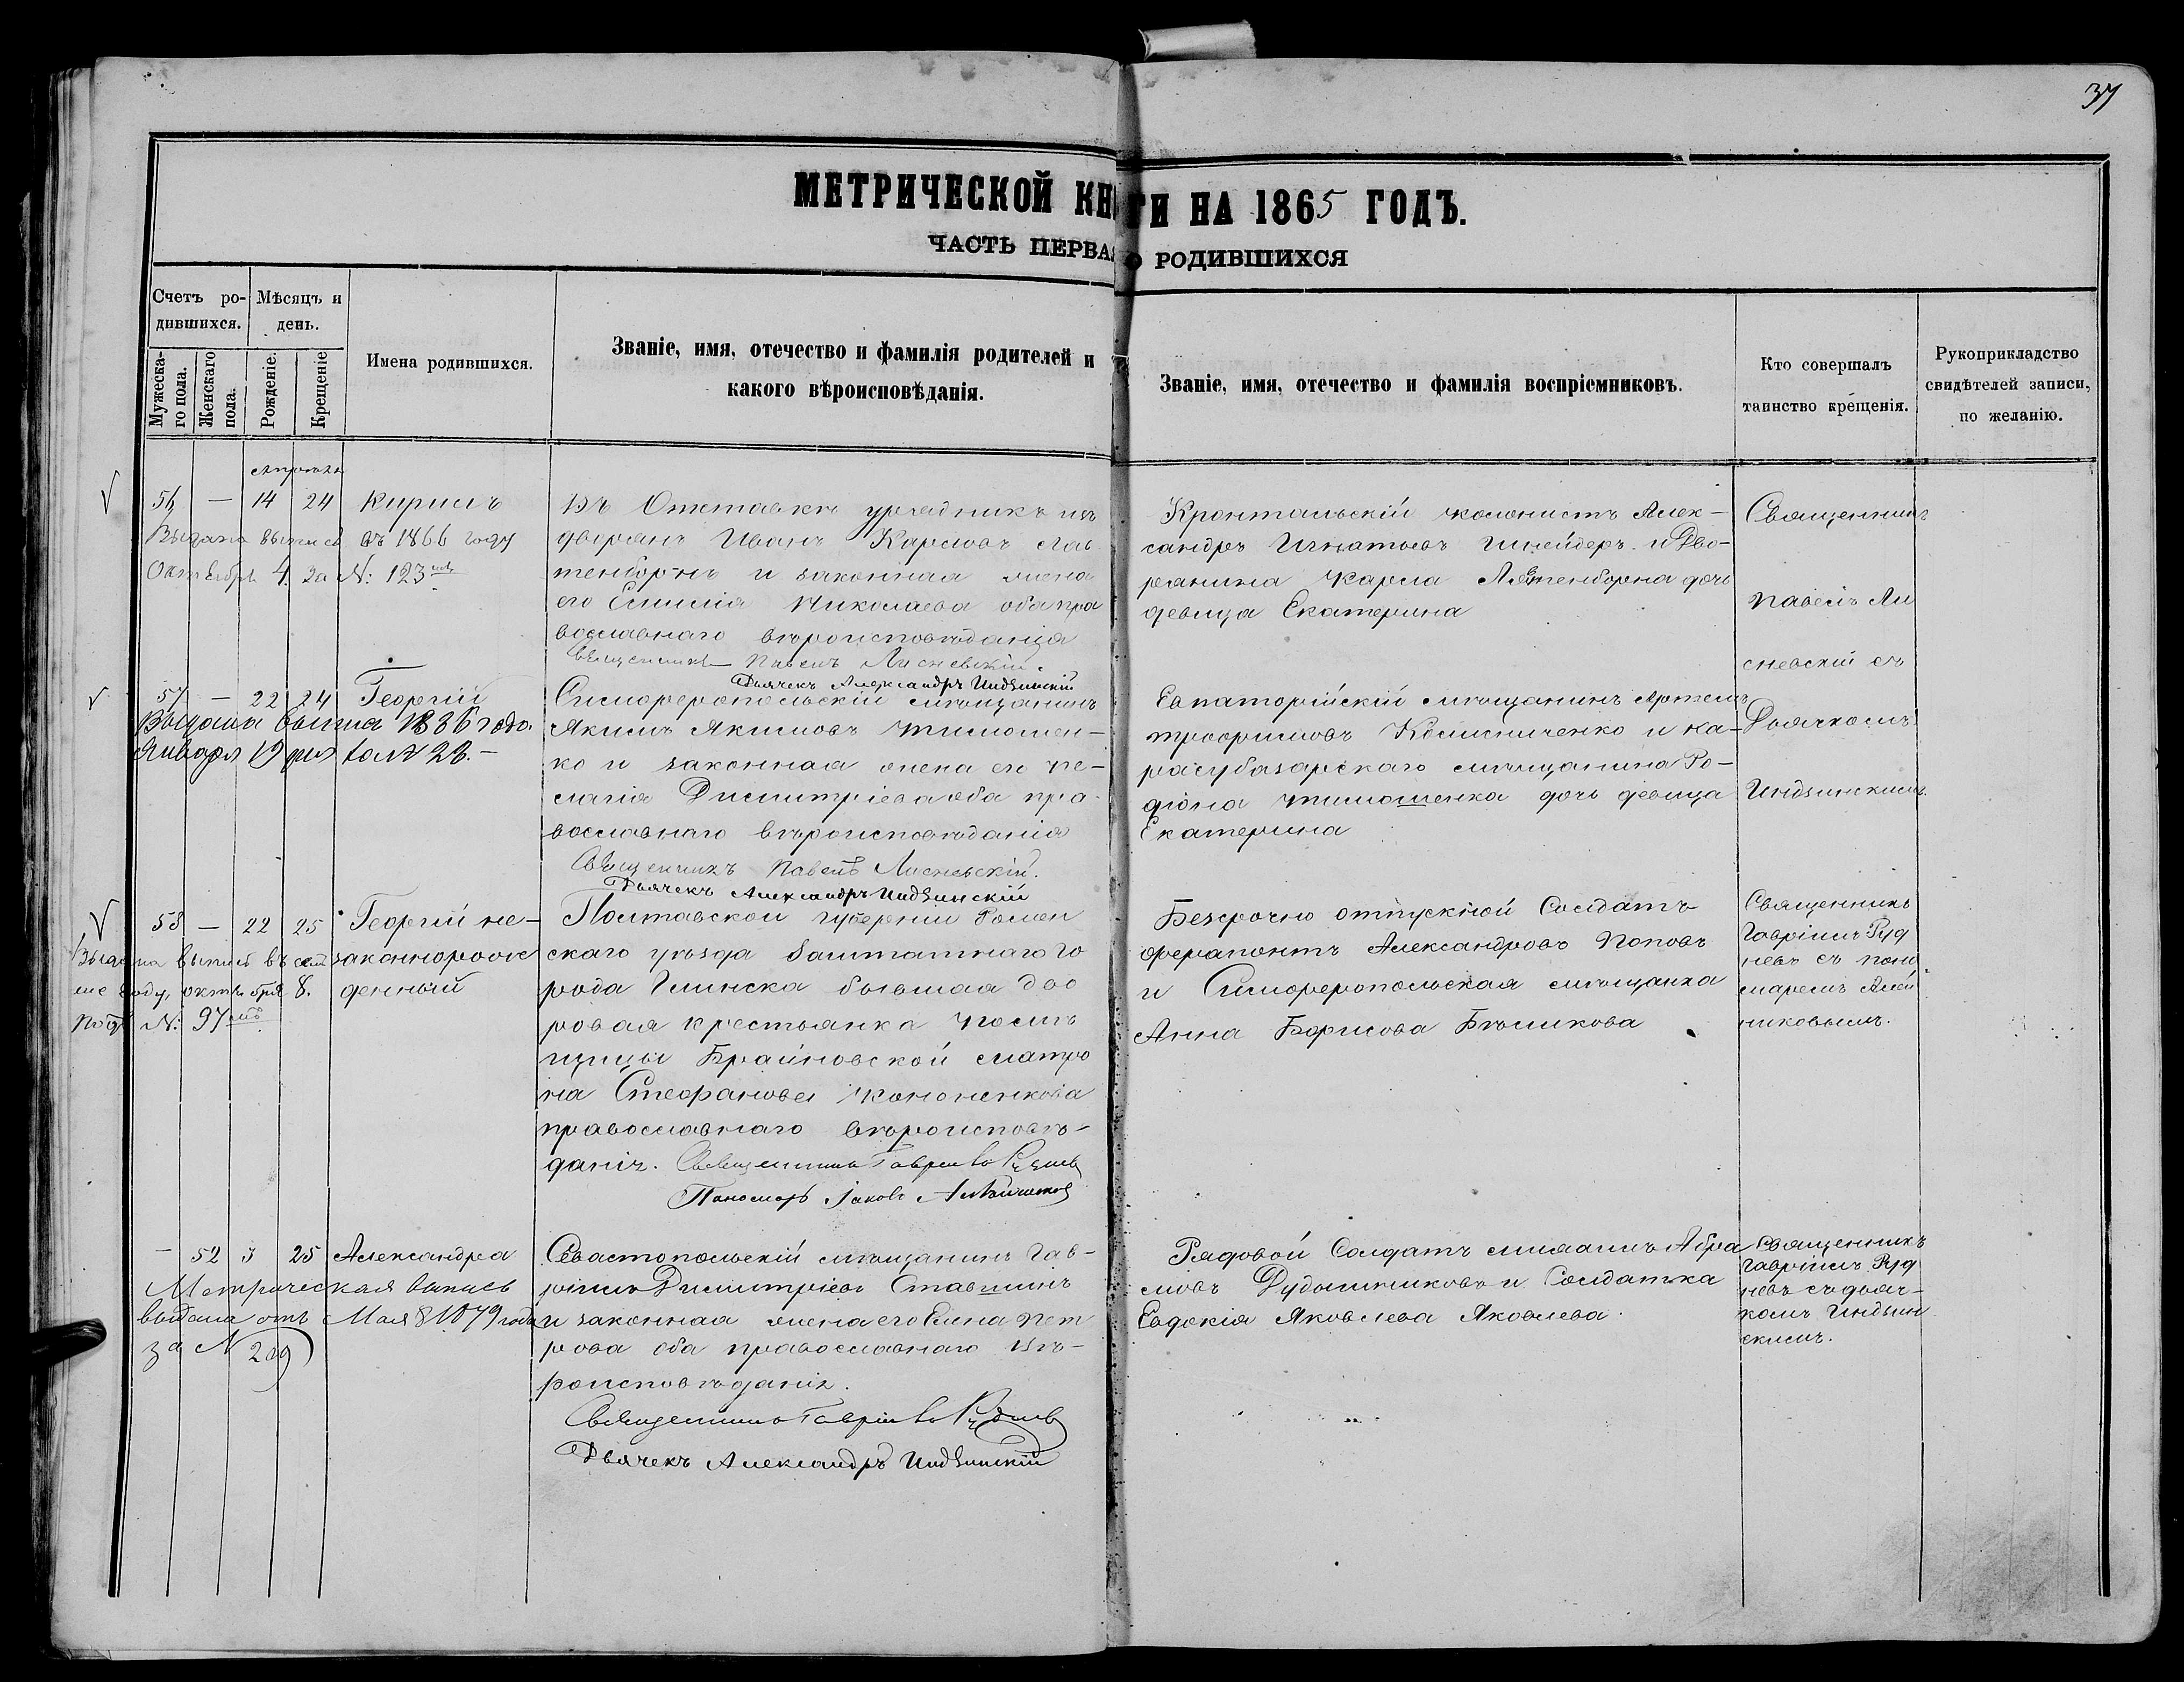 37
МЕТРИЧЕСКОЙ КНИГИ НА 1865 ГОДЪ.
ЧАСТЬ ПЕРВАЯ О РОДИВШИХСЯ
Счетъ ро-
дившихся.
Мѣсяцъ и
день.
Мужеска-
го пола.
Женскаго
пола.
Рожденіе.
Крещеніе
Имена родившихся.
Званіе, имя, отечество и фамилія родителей и
какого вѣроисповѣданія.
Званіе, имя, отечество и фамилія воспріемниковъ.
Кто совершалъ
таинство крещенія.
Рукоприкладство
свидѣтелей записи,
по желанію.
56 — 14 24 Кирилъ
Выдана выпись въ 1866 году
Октября 4. за N: 123
Въ Отставкѣ урядникъ изъ
дворянъ Иванъ Карловъ
и законная жена
его Емилія Николаева оба пра
вославнаго вѣроисповѣданія
Священникъ Павелъ Лисневскій.
Дьячекъ Александръ Индзинскій
Кронтальскій колонистъ Алек-
сандръ Игнатьевъ Шнейдеръ и Дво-
рянина Карла дочь
девица Екатерина
Священникъ
Павелъ Ли
сневскій съ
Дьячкомъ
Индзинскимъ.
57 — 22 24 Георгій
Выдана 1886 года
Января 19 дня за № 28.—
Симферопольскій мѣщанинъ
Акимъ Акимовъ Тимошен-
ко и законная жена его Пе-
лагія Димитріева оба пра-
вославнаго вѣроисповѣданія
Священникъ Павелъ Лисневскій.
Дьячекъ Александръ Индзинскій
Евпаторійскій мѣщанинъ Артемъ
Трофимовъ и Ка-
расубазарскаго мѣщанина Ро-
діона Тимошенка дочь девица
Екатерина
58 — 22 25 Георгій не-
законнорож
денный
Выдана выпись въ семъ
же году, октября 8.
подъ N: 97
Полтавской губерніи Ромен
скаго уѣзда заштатнаго го
рода Глинска бывшая дво
ровая крестьянка помѣ
щицы Брайновской Матро
на Стефанова Кононенкова
православнаго вѣроисповѣ-
данія. Священникъ Гавріилъ Рудневъ
Пономарь Іаковъ Алейниковъ
Безсрочно отпускной Солдатъ
Ферапонтъ Александровъ Поповъ
и Симферопольская мѣщанка
Анна Борисова Бѣликова
Священникъ
Гавріилъ Руд
невъ съ поно
маремъ Алей
никовымъ.
— 52 3 25 Александра
Метрическая выпись
выдана отъ Мая 8 1879 года
за N 209
Севастопольскій мѣщанинъ Гав-
ріилъ Димитріевъ Ставшинъ
и законная жена его Елена Пет
рова оба православнаго вѣ-
роисповѣданія.
Священникъ Гавріилъ Рудневъ
Дьячекъ Александръ Индзинскій
Рядовой Солдатъ Абра
мовъ и Солдатка
Евдокія Яковлева Яковлева.
Священникъ
Гавріилъ Руд
невъ съ дьяч-
комъ Индзин
скимъ.